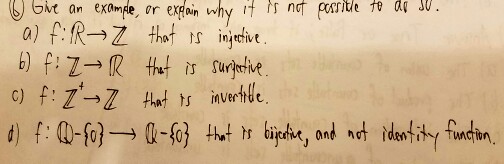 ⑥ Give an example, or explain why it is not possible to do so.
a) f: ℝ→ℤ that is injective.
b) f: ℤ→ℝ that is surjective.
c) f: ℤ⁺→ℤ that is invertible.
d) f: ℚ-{0} → ℚ-{0} that is bijective, and not identity function.